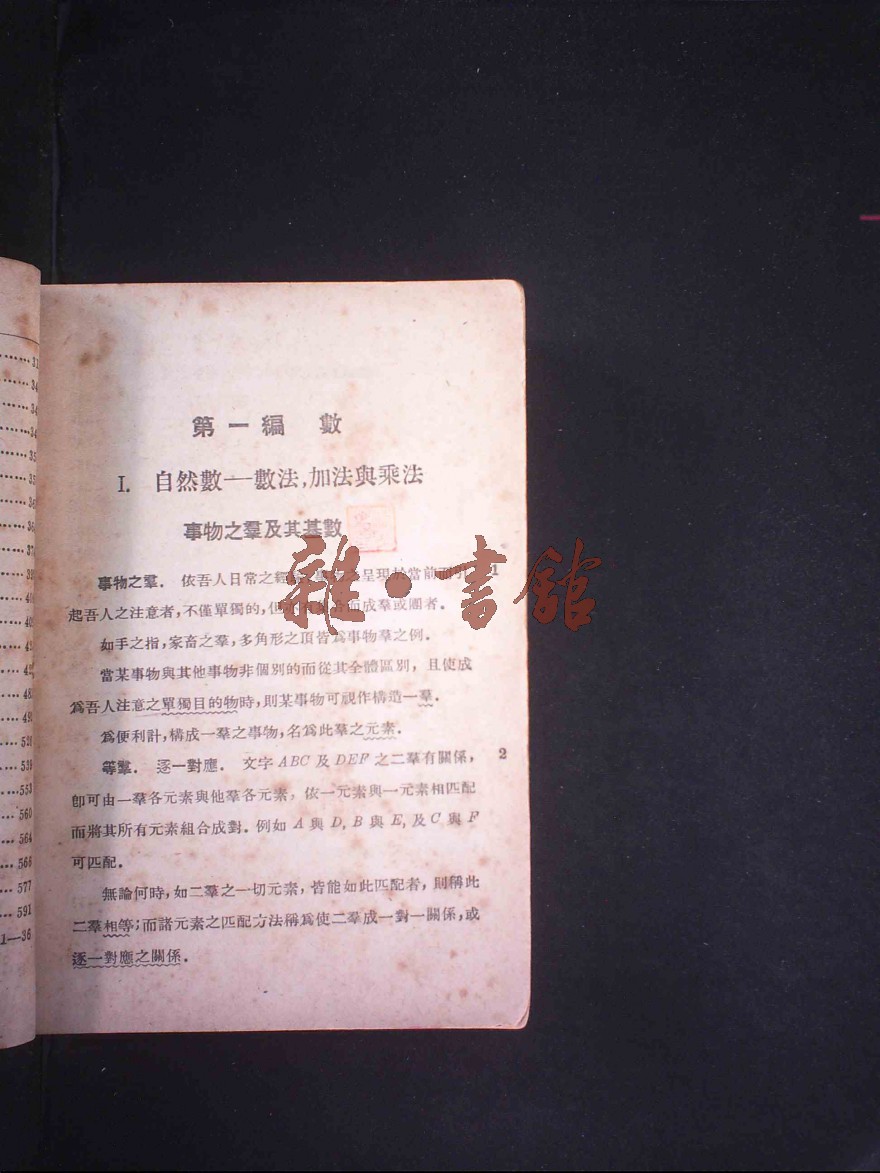 第一編　數
I. 自然數──數法,加法與乘法
事物之羣及其基數
事物之羣. 依吾人日常之經 呈現於當前而引 1
起吾人之注意者,不僅單獨的,但亦有集合而成羣或團者.
如手之指,家畜之羣,多角形之頂皆爲事物羣之例.
當某事物與其他事物非個別的而從其全體區別,且使成
爲吾人注意之單獨目的物時,則某事物可視作構造一羣.
爲便利計,構成一羣之事物,名爲此羣之元素.
等羣. 逐一對應. 文字 ABC 及 DEF 之二羣有關係, 2
卽可由一羣各元素與他羣各元素,依一元素與一元素相匹配
而將其所有元素組合成對.例如 A 與 D, B 與 E, 及 C 與 F
可匹配.
無論何時,如二羣之一切元素,皆能如此匹配者,則稱此
二羣相等;而諸元素之匹配方法稱爲使二羣成一對一關係,或
逐一對應之關係.
雜·書館
553
560
564
566
577
591
1—36